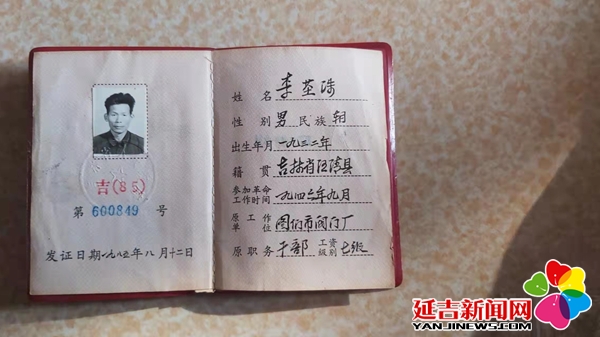 吉(85)
第 600849 号
发证日期一九八五年八月十二日
姓 名 李茎洙
性 别 男 民族 朝
出生年月 一九三二年
籍 贯 吉林省汪清县
参加革命工作时间 一九四六年九月
原工作单位 图们市阀门厂
原职务 干部 工资级别 七级
延吉新闻网
YANJINEWS.COM